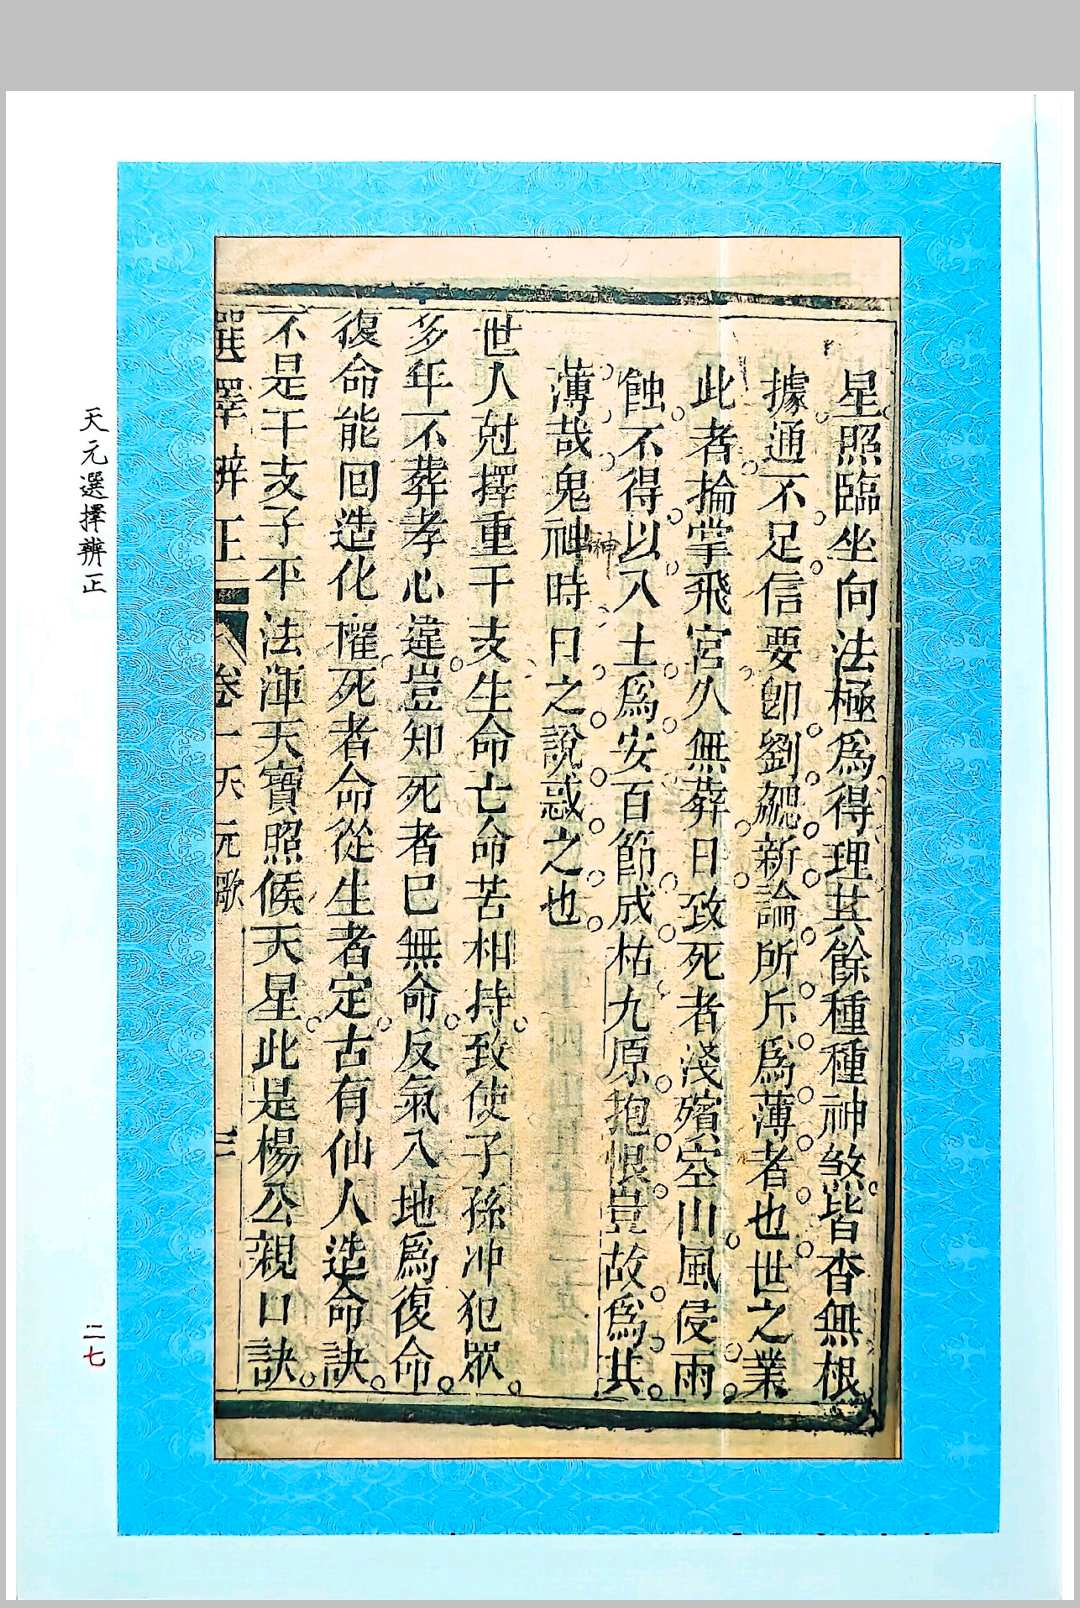 星照臨坐向法極爲得理其餘種種神煞皆杳無根
據通不足信要卽劉勰新論所斥爲薄者也世之業
此者掄掌飛宮久無葬日致死者淺殯空山風侵雨
蝕不得以入土爲安百節成枯九原抱恨豈故爲其
薄哉鬼神時日之說惑之也
神
世人尅擇重干支生命亡命苦相持致使子孫冲犯眾
多年不葬孝心違豈知死者已無命反氣入地爲復命
復命能回造化權死者命從生者定古有仙人造命訣
不是干支子平法渾天寶照候天星此是楊公親口訣
選擇辨正 卷一天元歌 三
天元選擇辨正
二七